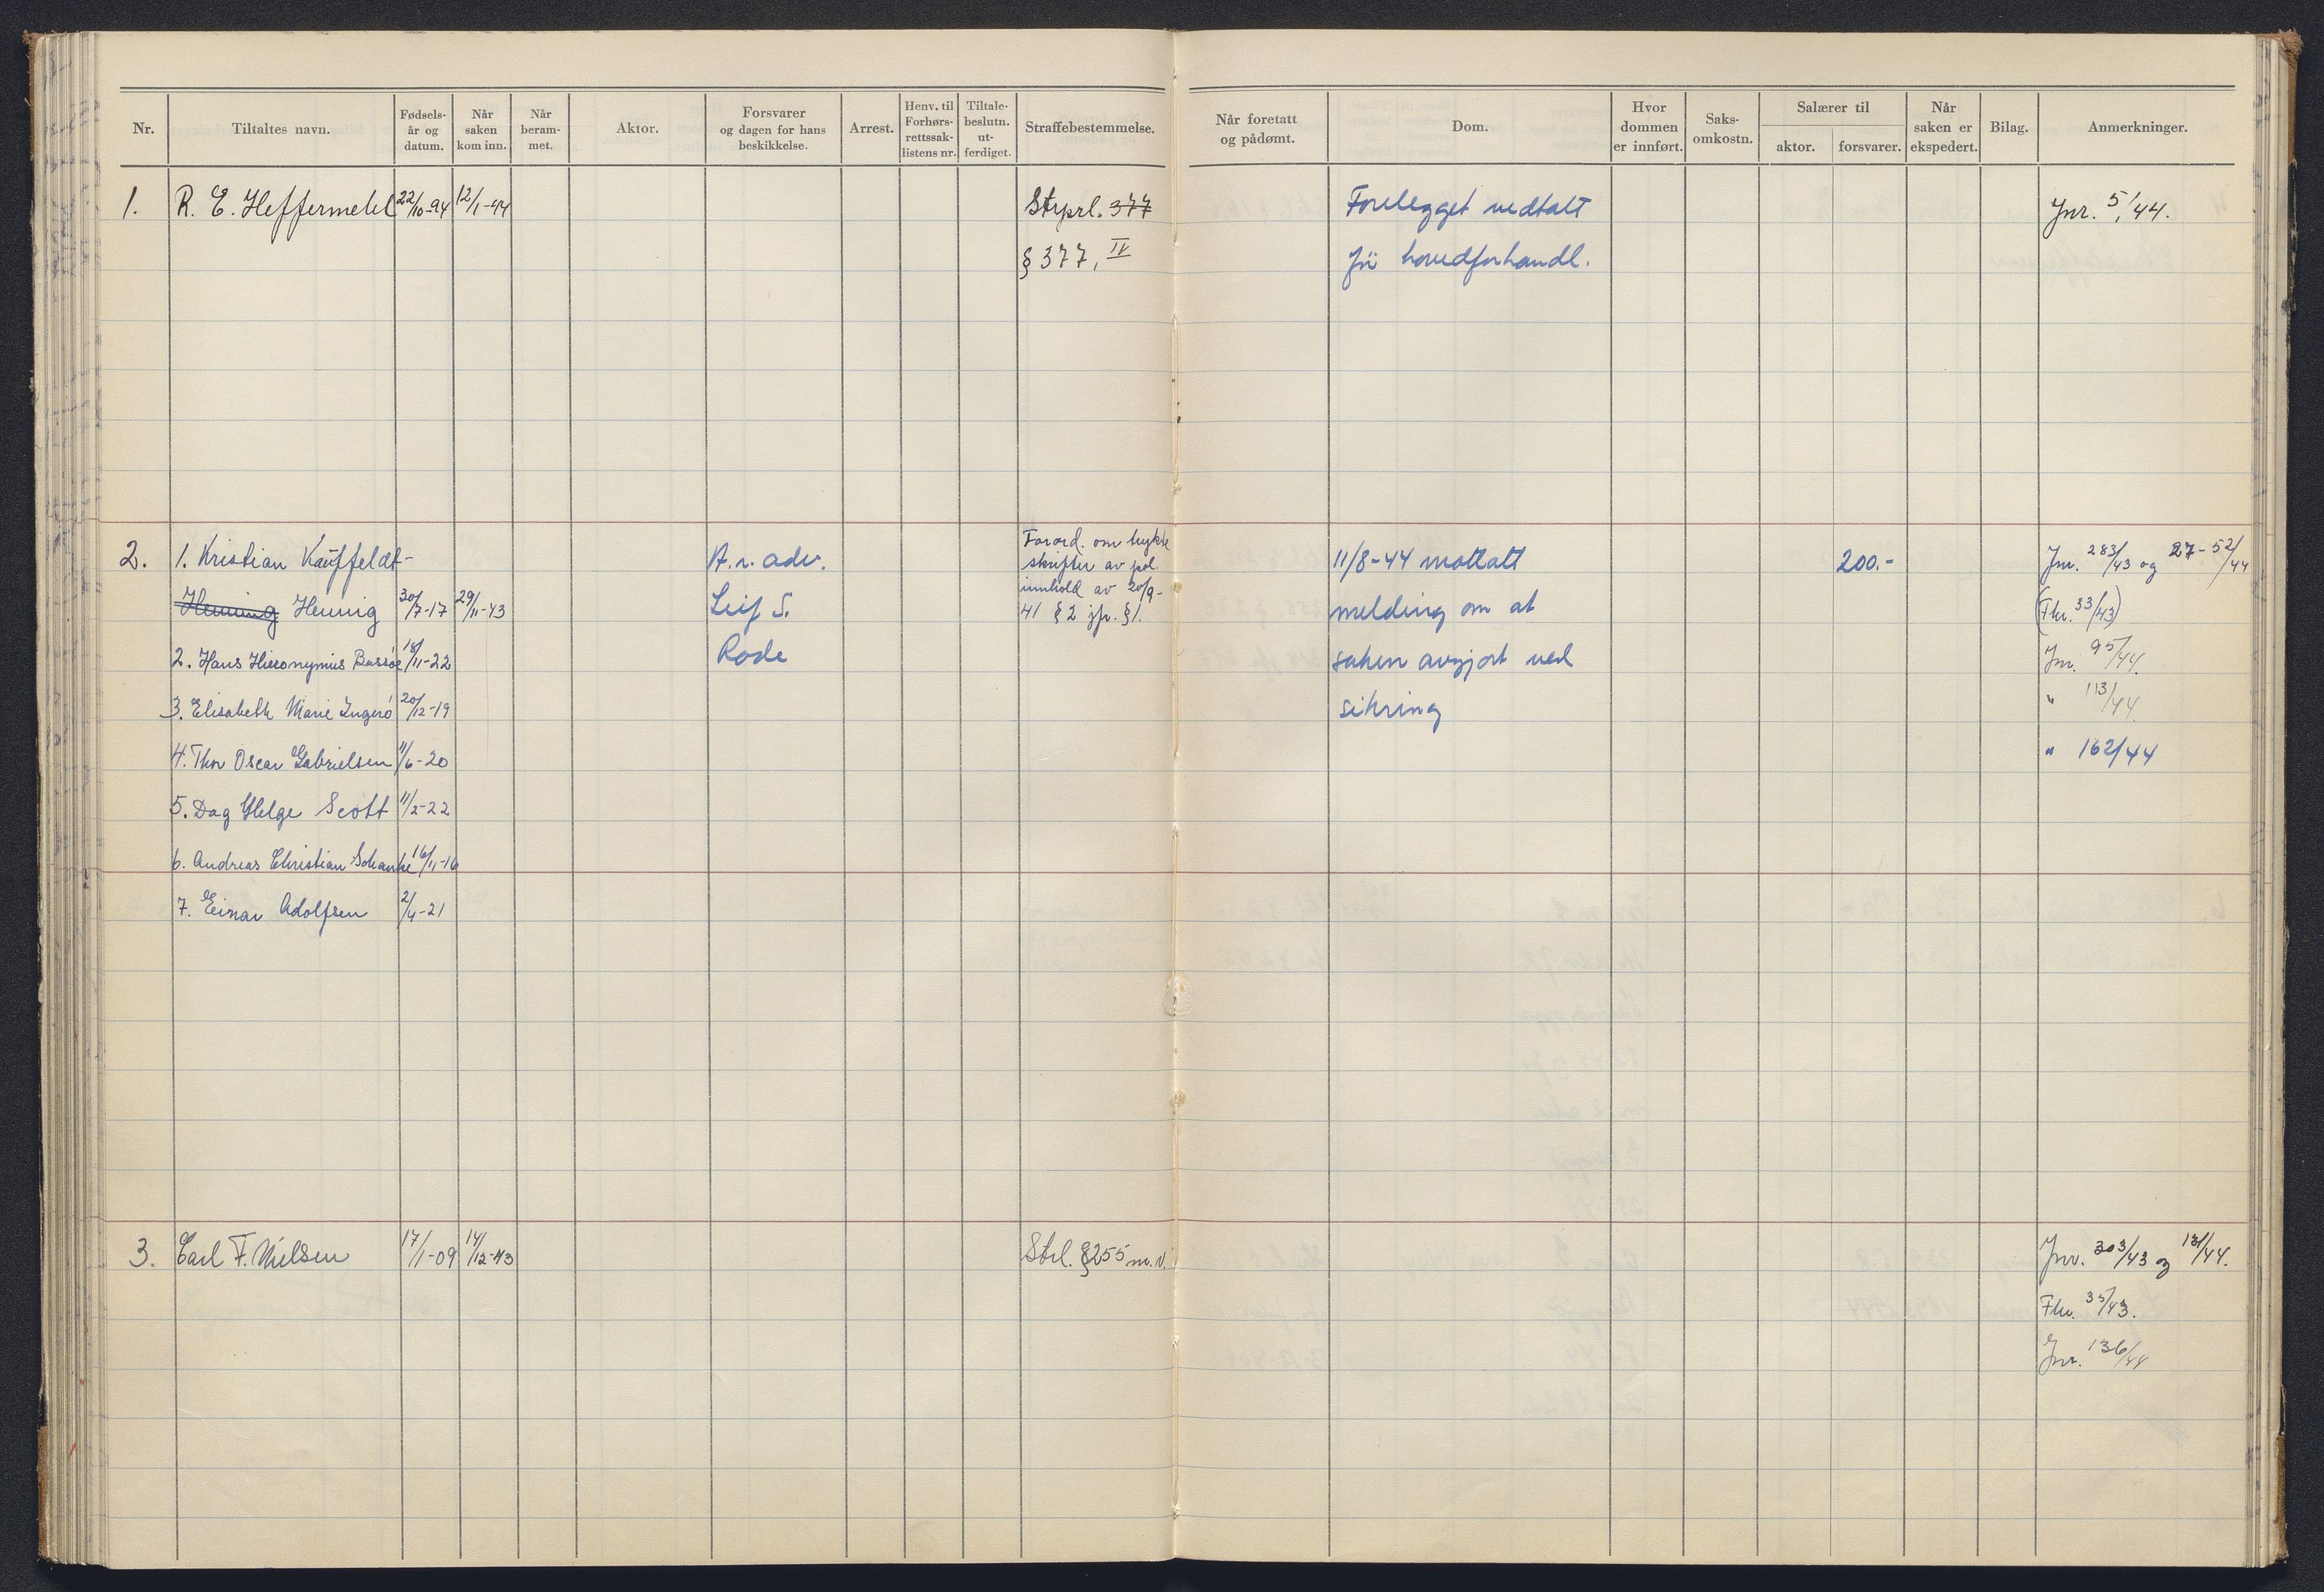 Nr. Tiltaltes navn. Fødsels- år og datum. Når saken kom inn. Når beram- met. Aktor. Forsvarer og dagen for hans beskikkelse. Arrest. Henv. til Forhørs- rettssak- listens nr. Tiltale- beslutn. ut- ferdiget. Straffebestemmelse. Når foretatt og pådømt. Dom. Hvor dommen er innført. Saks- omkostn. Salærer til aktor. forsvarer. Når saken er ekspedert. Bilag. Anmerkninger.
1. R. E. Heffermehl 22/10-94 12/1-44 Strprl. 377 Forelegget vedtatt Jnr. 5/44.
§ 377, IV før hovedforhandl.
2. 1. Kristian Kauffeldt- A. r. adv. Forord. om trykte skrifter av pol. innhold av 20/9- 41 § 2 jfr. § 1. 11/8-44 mottatt 200.- Jnr. 283/43 og 27-52/44
Henning Hennig 30/7-17 29/11-43 Leif S. melding om at (Fhr. 33/43)
2. Hans Hieronymus 18/11-22 Rode saken avgjort ved Jnr. 95/44.
3. Elisabeth Marie Ingerø 20/12-19 sikring " 113/44.
4. Thor Oscar Gabrielsen 11/6-20 " 162/44
5. Dag Helge Scott 11/2-22
6. Andreas Christian Schanke 16/11-16
7. Einar Adolfsen 2/4-21
3. Carl F. Nielsen 17/1-09 14/12-43 Strl. § 255 m.v. Jnr. 303/43 og 131/44.
Fhr. 35/43.
Jnr. 136/44